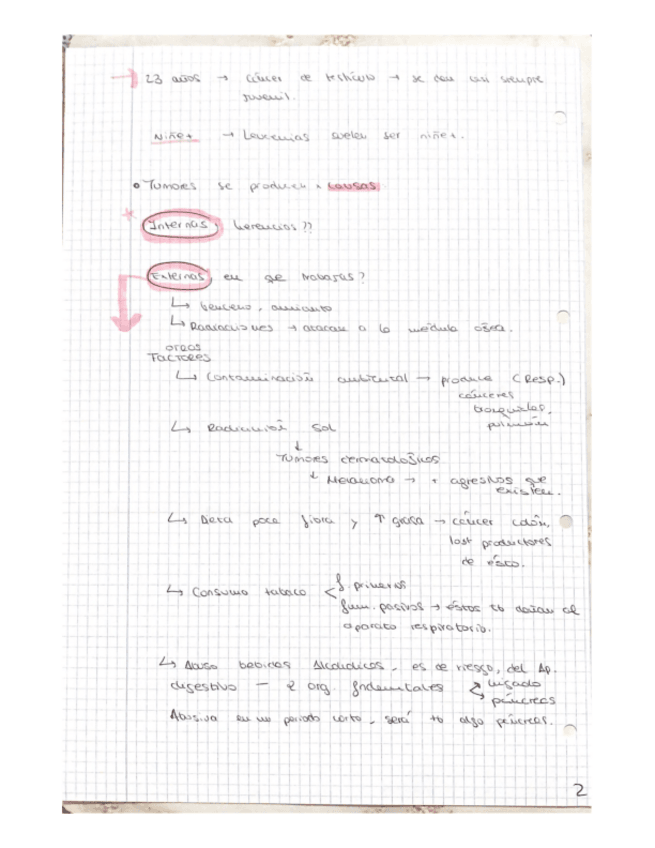 → 23 años → cáncer de testículo → se dan casi siempre
juvenil.
Niñe+ → Leucemias suelen ser niñe+.
• Tumores se producen x causas
* Internas, herencias??
Externas, en qe trabajas?
↳ benceno, amianto
↳ Radiaciones → atacan a la médula ósea.
otros
FACTORES
↳ Contaminación ambiental → produce (Resp.)
cánceres
bronquiales,
pulmón
↳ Radiación Sol
↓
Tumores dermatológicos
↓ Melanoma → + agresivos que
existen.
↳ Dieta poca fibra y ↑ grasa → cáncer colon,
productores
de ésto.
↳ Consumo tabaco < f. primarios
fum. pasivos → éstos tb dañan al
aparato respiratorio.
↳ Abuso bebidas Alcohólicas, es de riesgo, del Ap.
digestivo — 2 org. fndamentales hígado
páncreas
Abusiva en un periodo corto, será tb algo páncreas.
2